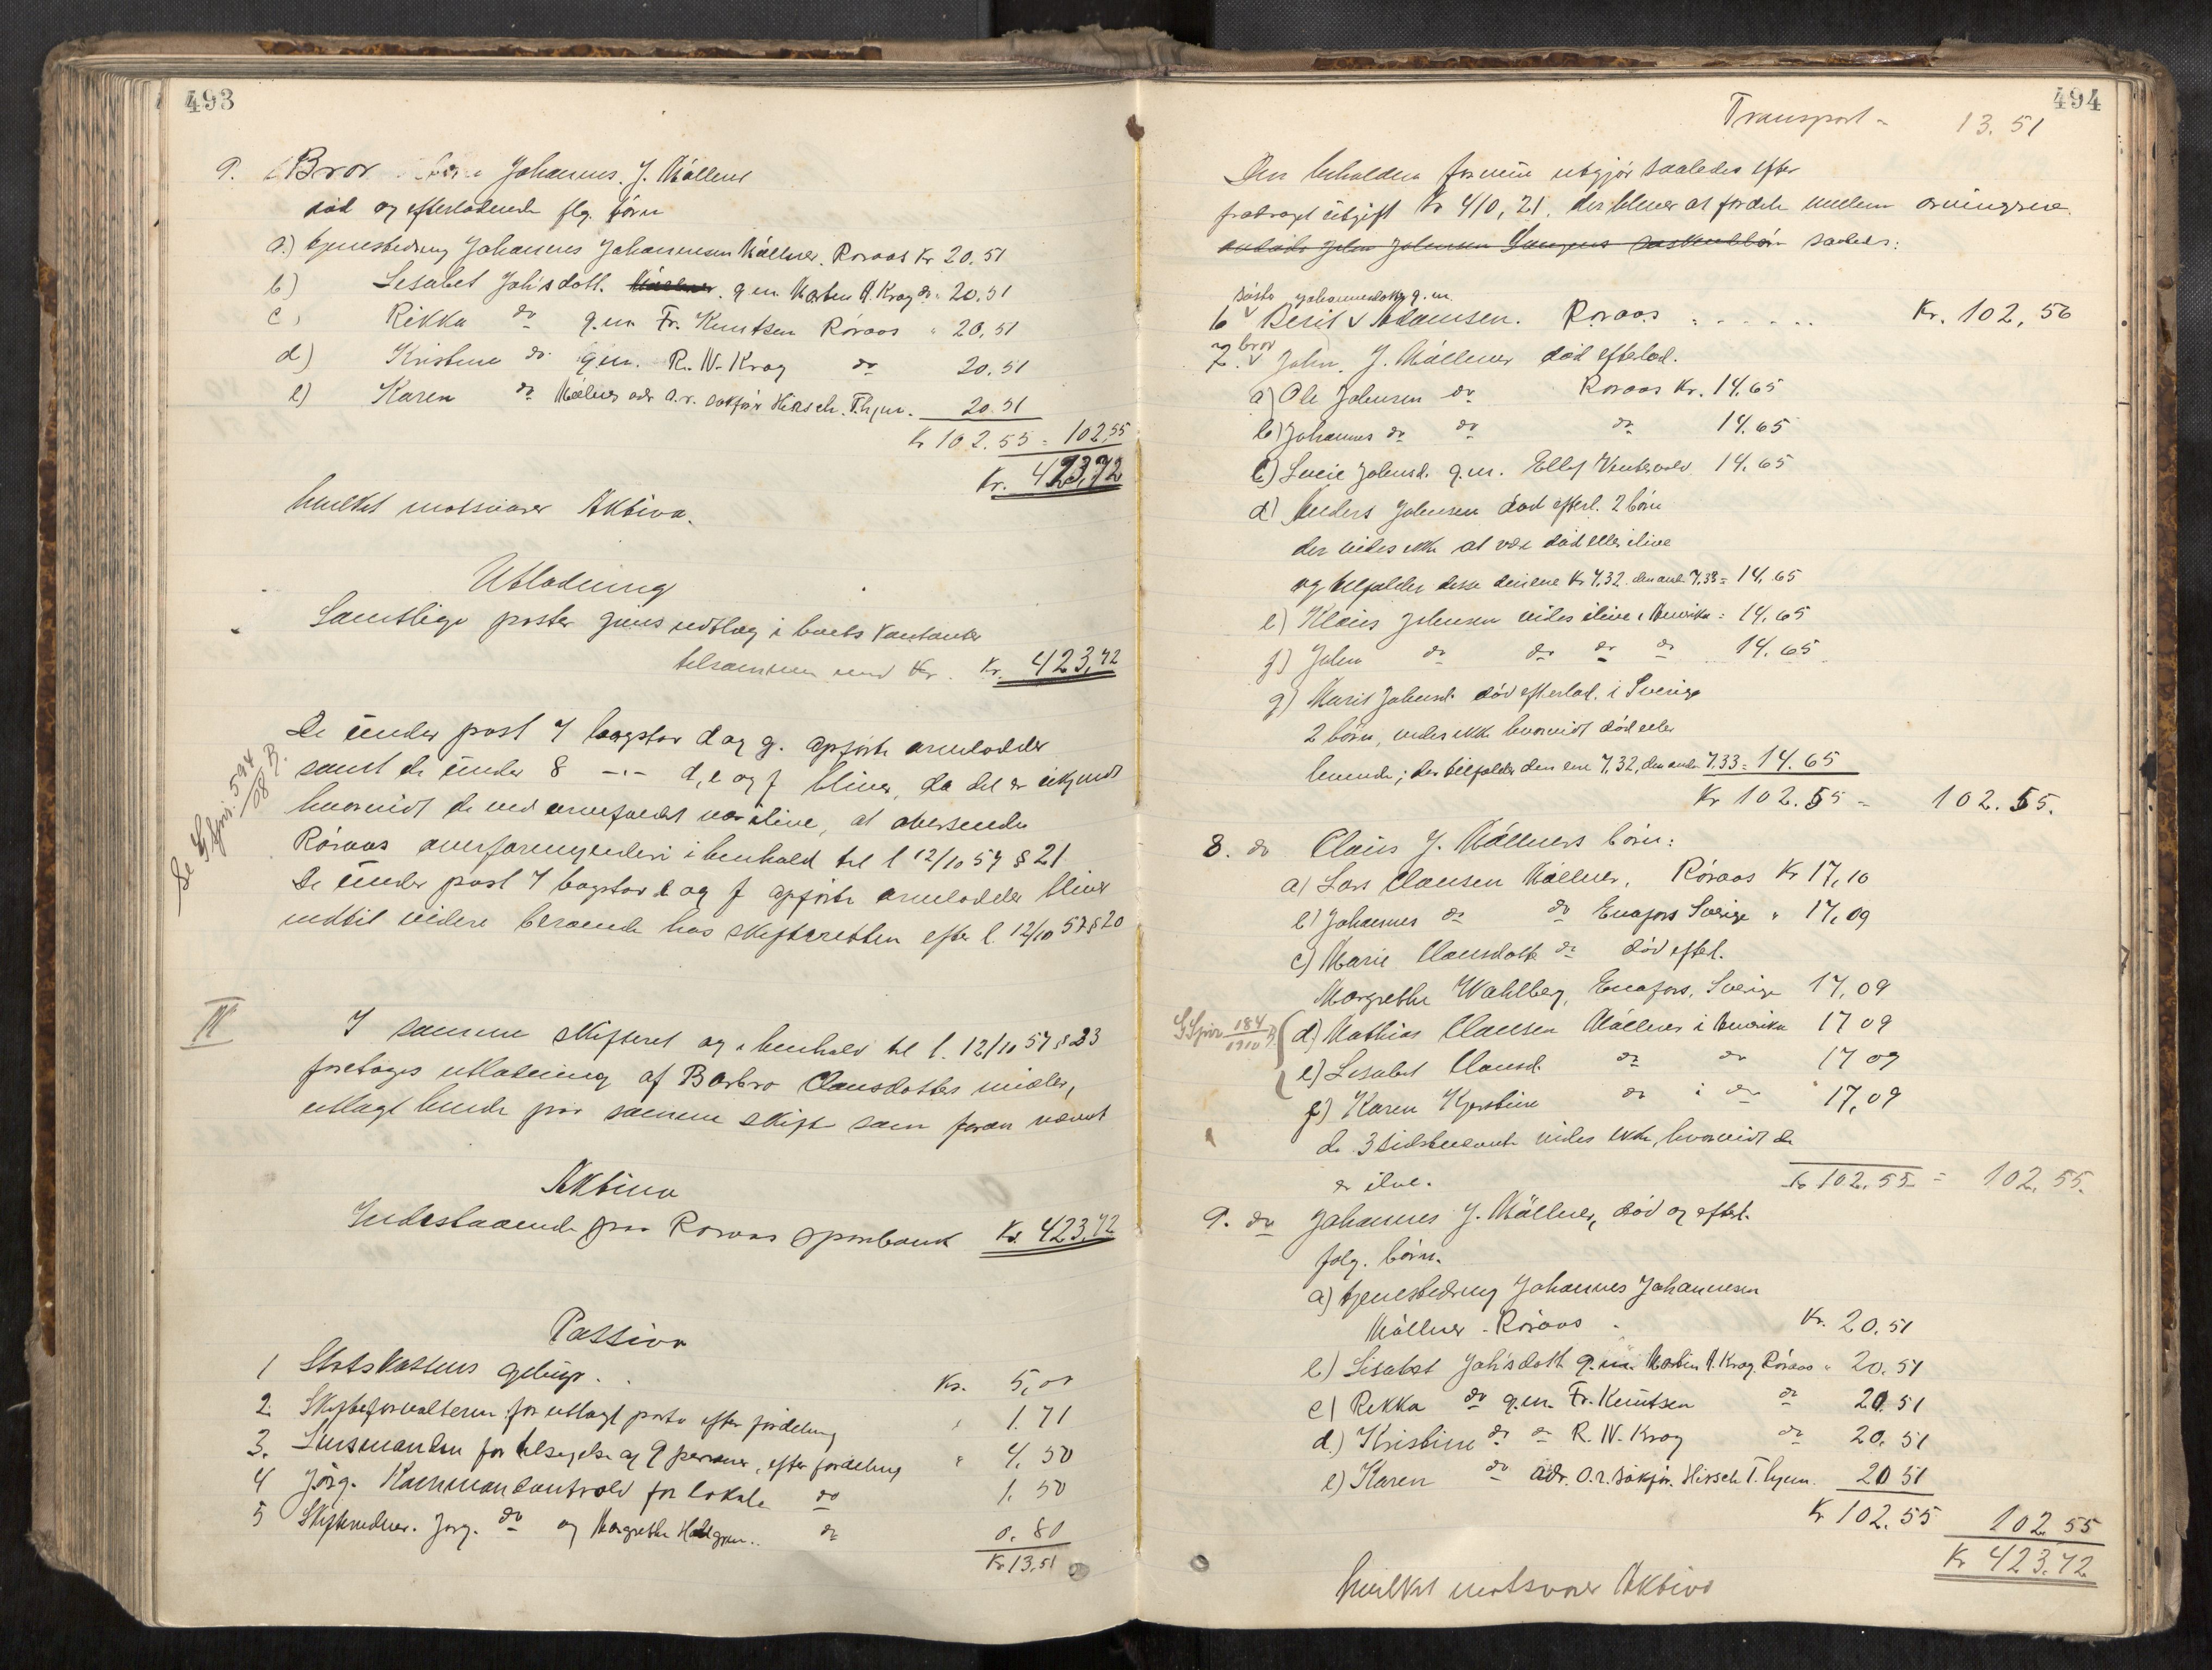 493
9. Bror Johannes J. Møllner
død og efterladende flg. børn
a.) tjenestedreng Johannes Johannesen Møllner. Røraas Kr 20.51
b) Lisabet Joh'sdott. g.m. Morten A. Krag do " 20.51
c) Rikka do g.m. Fr. Knutsen Røraas " 20,51
d) Kristine do g.m. R. N. Krag do 20.51
e) Karen do Møllner adr o.r. sakfør Hirsch. T.hjem. 20.51
Kr 102.55 = 102,55
Kr. 423,72
hvilket motsvarer Aktiva.
Utlodning
Samtlige poster gives udlæg i boets kontanter
tilsammen med Kr. Kr. 423,72
De under post 7 bogstav d og g. opførte arvelodder
samt de under 8 -"- d, e og f bliver, da det er ukjendt
hvorvidt de ved arvefaldet var ilive, at oversende
Røraas overformynderi i henhold til l 12/10 57 § 21
De under post 7 bogstav e og f opførte arvelodder bliver
indtil videre beroende hos skifteretten efter l. 12/10 57 § 20
Se Gjfør. 594/08 B.
III
I samme skifteret og i henhold til l. 12/10 57 § 23
foretages utlodning af Barbro Clausdatters midler,
utlagt hende paa samme skifte som foran nævnt
Aktiva
Indestaaende paa Røraas sparebank Kr. 423,72
Passiva
1 Statskassens gebyr . . Kr. 5,00
2. Skifteforvalteren for utlagt porto efter fordeling " 1.71
3. Lensmanden for tilsigelse af 9 personer, efter fordeling " 4.50
4 Jørg. Kammandantvold for lokale do 1.50
5 Skiftevidner. Jørg. do og Margrethe do 0.80
Kr 13,51
494
Transport " 13.51
Den beholdne formue utgjør saaledes efter
fradraget utgift Kr 410,21. der bliver at fordele mellem arvingerne
saaledes:
6 søster Berit Johannesdotter g.m. Adamsen. Røraas . . . . . Kr. 102,56
7. bror John J. Møllner død efterlad.
a) Ole Johnsen do Røraas Kr. 14,65
b) Johannes do do do 14.65
c) Lucie Johnsd. g.m. Ellef Vintervold 14.65
d) Anders Johnsen død efterl. 2 børn
der vides ikke at være død eller ilive
og tilfalder disse den ene Kr 7,32. den and. 7,33 = 14,65
e) Klaus Johnsen vides ilive i Amerika = 14,65
f) John do do do do 14.65
g) Marit Johnsd. død efterlad. i Sverige
2 børn, vides ikke hvorvidt død eller
levende; der tilfalder den ene 7,32, den andre 7.33 = 14.65
Kr 102.55 = 102.55.
8. do Claus J. Møllners børn:
a) Lars Clausen Møllner, Røraas Kr 17,10
b) Johannes do do Enafors Sverige " 17,09
c) Marie Clausdott do død efterl.
Margrethe Wahlberg, Enafors, Sverige 17,09
Gjfør 184/1910 B.
d) Mathias Clausen Møllner i Amerika 17 09
e) Lisabet Clausd. do do 17 09
f) Karen Kjerstine do i do 17,09
de 3 sidstnævnte vides ikke, hvorvidt de
er ilive. Kr 102.55 = 102,55.
9. do Johannes J. Møllner, død og efterl.
følg. børn.
a) tjenestedreng Johannes Johannesen
Møllner . Røraas . Kr. 20.51
b) Lisabet Joh'sdott g.m. Morten A. Krag Røraas " 20.51
c) Rikka do g.m. Fr. Knutsen do 20.51
d.) Kristine do do R. N. Krag do 20.51
e) Karen do adr. o.r. sakfør. Hirsch T.hjem. 20 51
Kr 102.55 102 55
Kr 423.72
hvilket motsvarer Aktiva